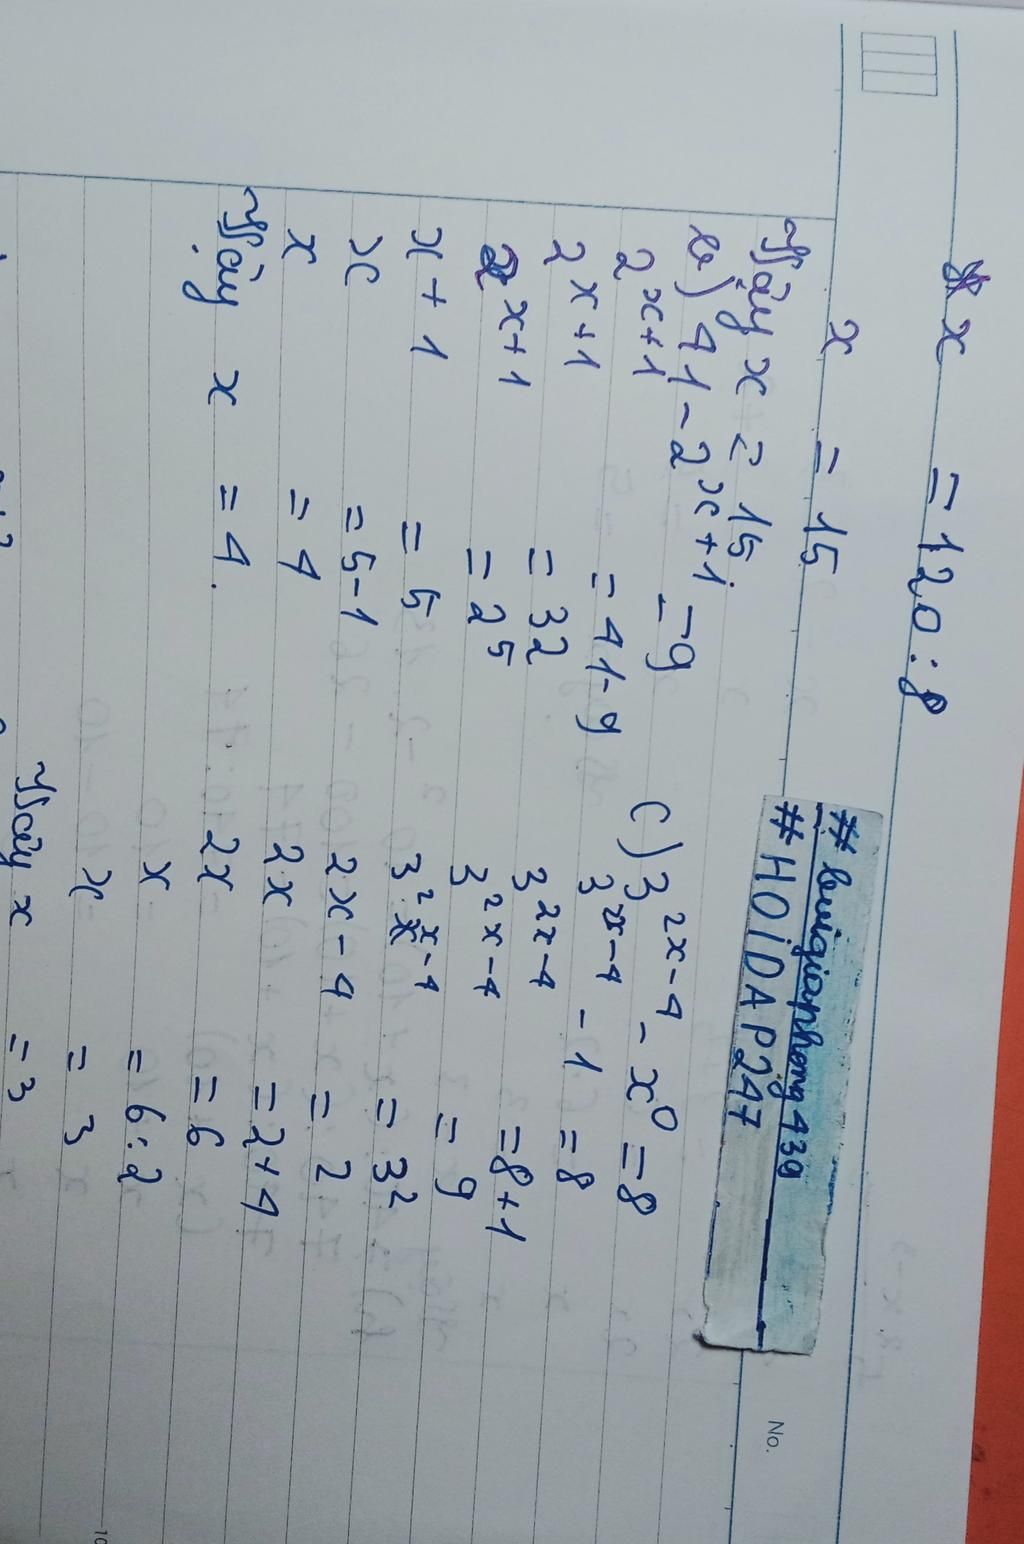 x = 120 : 8
x = 15
Vậy x = 15.
b) 41 - 2^x+1 = 9
2^x+1 = 41 - 9
2^x+1 = 32
2^x+1 = 2^5
x + 1 = 5
x = 5 - 1
x = 4
Vậy x = 4.
#buigiaphong439
#HOIDAP247
c) 3^2x-4 - x^0 = 8
3^2x-4 - 1 = 8
3^2x-4 = 8 + 1
3^2x-4 = 9
3^2x-4 = 3^2
2x - 4 = 2
2x = 2 + 4
2x = 6
x = 6 : 2
x = 3
Vậy x = 3
No.